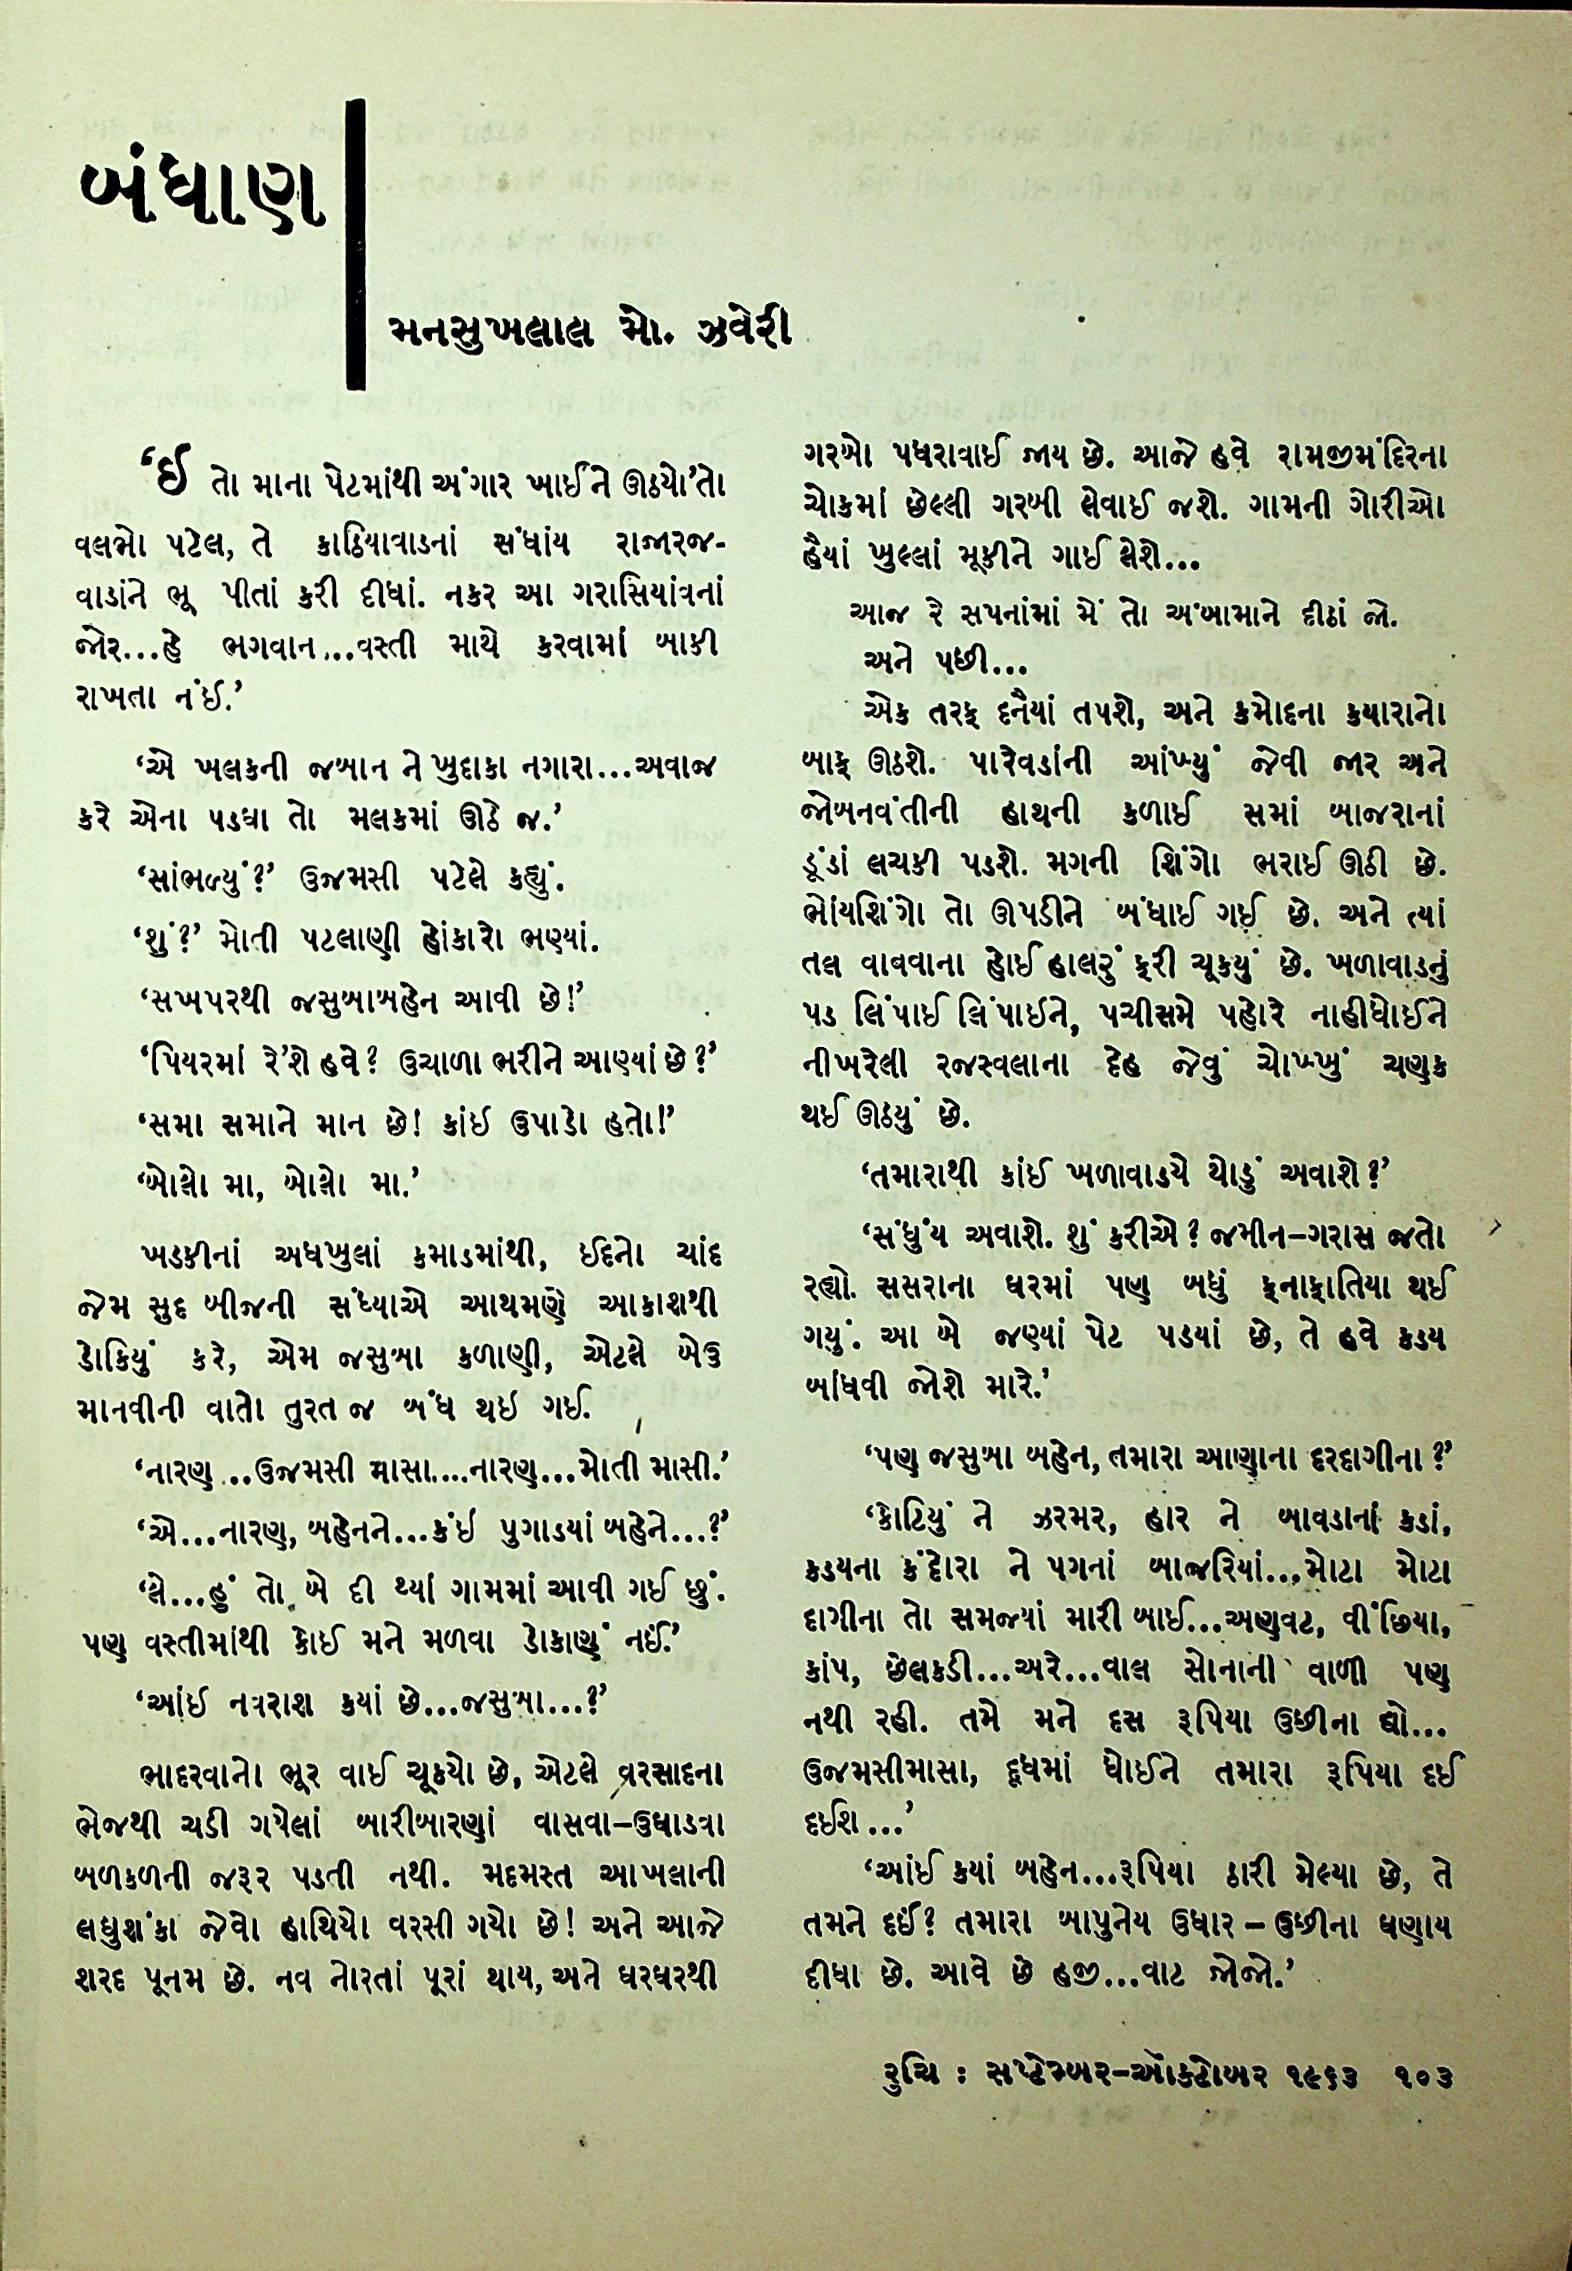 બંધાણ
મનસુખલાલ મો. ઝવેરી
‘ઈ તો માના પેટમાંથી અંગાર ખાઈને ઊઠયો’તો
વલભો પટેલ, તે કાઠિયાવાડનાં સંધાંય રાજારજ-
વાડાંને ભૂ પીતાં કરી દીધાં. નકર આ ગરાસિયાંવનાં
જોર...હે ભગવાન...વસ્તી માથે કરવામાં બાકી
રાખતા નંઈ.’
‘એ ખલકની જબાન ને ખુદાકા નગારા...અવાજ
કરે એના પડઘા તો મલકમાં ઊઠે જ.’
‘સાંભળ્યું?’ ઉજમસી પટેલે કહ્યું.
‘શું?’ મોતી પટલાણી હોંકારો ભણ્યાં.
‘સખપરથી જસુબાબહેન આવી છે!’
‘પિયરમાં રે’શે હવે? ઉચાળા ભરીને આણ્યાં છે?’
‘સમા સમાને માન છે! કાંઈ ઉપાડો હતો!’
‘બોલો મા, બોલો મા.’
ખડકીનાં અધખુલાં કમાડમાંથી, ઈદનો ચાંદ
જેમ સુદ બીજની સંધ્યાએ આથમણે આકાશથી
ડોકિયું કરે, એમ જસુબા કળાણી, એટલે બેઉ
માનવીની વાતો તુરત જ બંધ થઇ ગઈ.
‘નારણ...ઉજમસી માસા....નારણ...મોતી માસી.’
‘એ...નારણ, બહેનને...કંઇ પુગાડયાં બહેને...?’
‘લે...હું તો બે દી થ્યાં ગામમાં આવી ગઈ છું.
પણ વસ્તીમાંથી કોઈ મને મળવા ડોકાણું નઈં.’
‘આંઈ નવરાશ કયાં છે...જસુબા...?’
ભાદરવાનો ભૂર વાઈ ચૂકયો છે, એટલે વરસાદના
ભેજથી ચડી ગયેલાં બારીબારણાં વાસવા–ઉઘાડવા
બળકળની જરૂર પડતી નથી. મદમસ્ત આખલાની
લઘુશંકા જેવો હાથિયો વરસી ગયો છે! અને આજે
શરદ પૂનમ છે. નવ નોરતાં પૂરાં થાય, અને ઘરઘરથી
ગરબો પધરાવાઈ જાય છે. આજે હવે રામજીમંદિરના
ચોકમાં છેલ્લી ગરબી લેવાઈ જશે. ગામની ગોરીઓ
હૈયાં ખુલ્લાં મૂકીને ગાઈ લેશે...
આજ રે સપનાંમાં મેં તો અંબામાને દીઠાં જો.
અને પછી...
એક તરફ દનૈયાં તપશે, અને કમોદના કયારાનો
બાફ ઊઠશે. પારેવડાંની આંખ્યું જેવી જાર અને
જોબનવંતીની હાથની કળાઈ સમાં બાજરાનાં
ડૂંડાં લચકી પડશે. મગની શિંગો ભરાઈ ઊઠી છે.
ભોંયશિંગો તો ઊપડીને બંધાઈ ગઈ છે. અને ત્યાં
તલ વાવવાના હોઈ હાલરું ફરી ચૂકયું છે. ખળાવાડનું
પડ લિંપાઈ લિંપાઈને, પચીસમે પહોરે નાહીધોઈને
નીખરેલી રજસ્વલાના દેહ જેવું ચોખ્ખું ચણક
થઈ ઊઠયું છે.
‘તમારાથી કાંઈ ખળાવાડયે થોડું અવાશે?’
‘સંધુંય અવાશે. શું કરીએ? જમીન–ગરાસ જતો
રહ્યો. સસરાના ઘરમાં પણ બધું ફનાફાતિયા થઈ
ગયું. આ બે જણ્યાં પેટ પડયાં છે, તે હવે કડય
બાંધવી જોશે મારે.’
‘પણ જસુબા બહેન, તમારા આણાના દરદાગીના?’
‘કોટિયું ને ઝરમર, હાર ને બાવડાનાં કડાં,
કડયના કંદોરા ને પગનાં બાજરિયાં...મોટા મોટા
દાગીના તો સમજ્યાં મારી બાઈ...અણવટ, વીંછિયા,
કાંપ, છેલકડી...અરે...વાલ સોનાની વાળી પણ
નથી રહી. તમે મને દસ રૂપિયા ઉછીના દ્યો...
ઉજમસીમાસા, દૂધમાં ધોઈને તમારા રૂપિયા દઈ
દઈશ...’
‘આંઈ કયાં બહેન...રૂપિયા ઠારી મેલ્યા છે, તે
તમને દઈં? તમારા બાપુનેય ઉધાર – ઉછીના ઘણાય
દીધા છે. આવે છે હજી...વાટ જોજો.’
રુચિ : સપ્ટેમ્બર–ઑક્ટોબર ૧૯૬૩ ૧૦૩